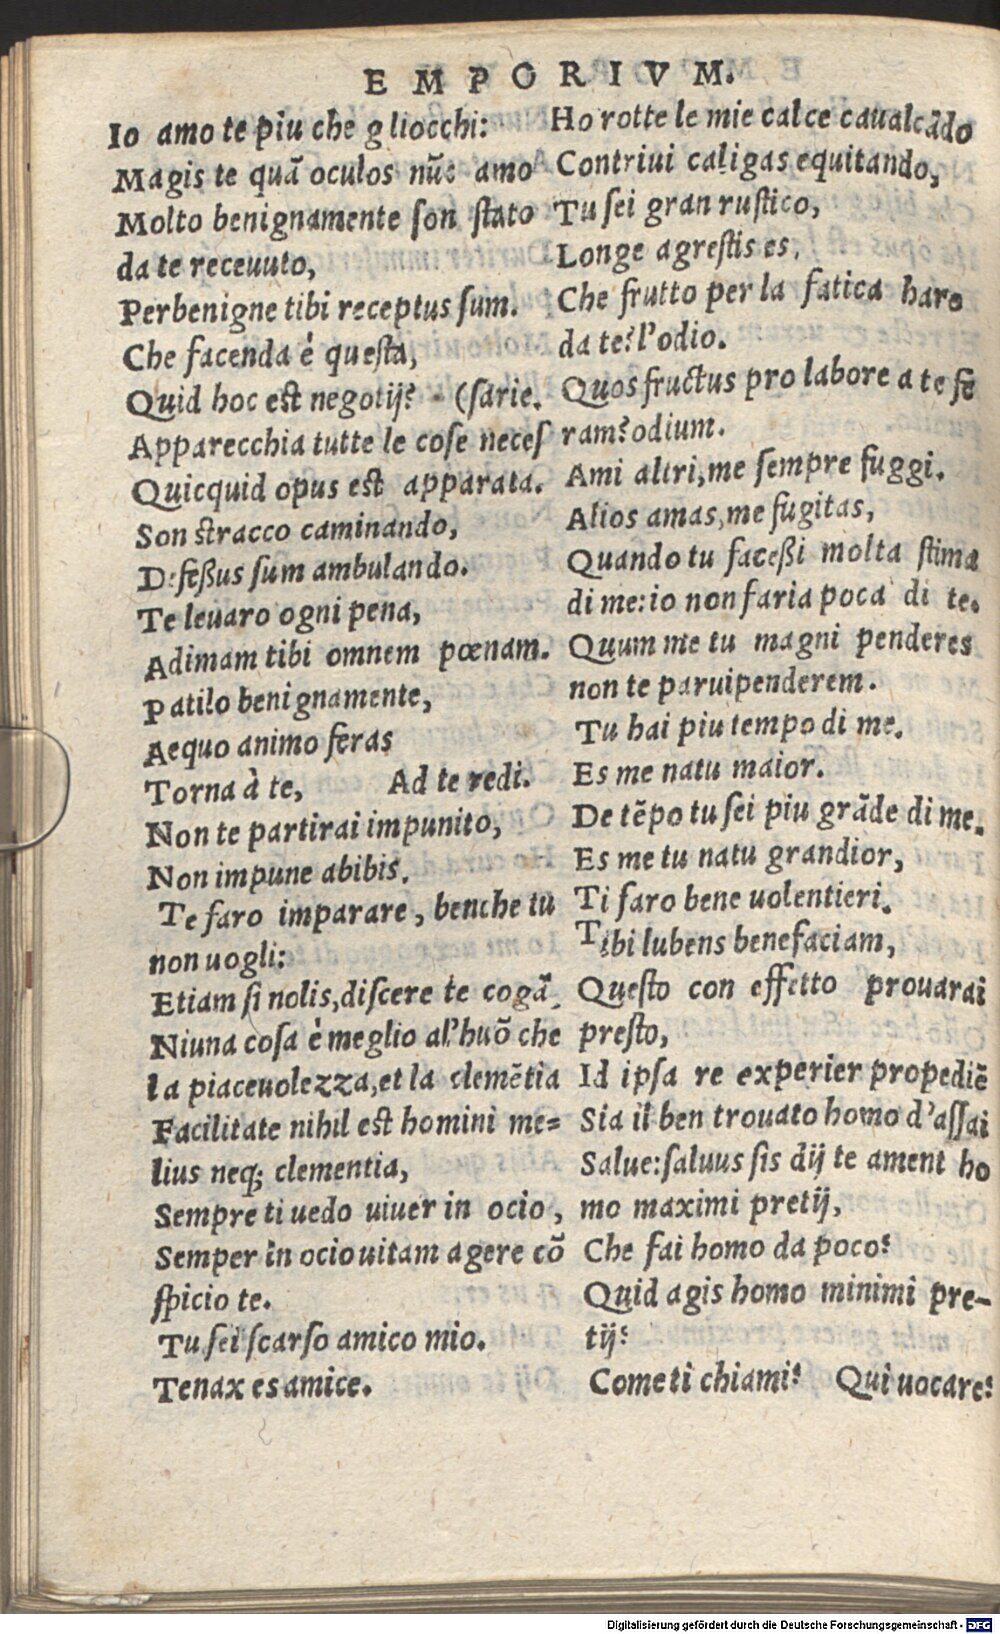 EMPORIVM.
Io amo te piu che gliocchi:
Magis te quã oculos nũc amo
Molto benignamente ſon ſtato
da te receuuto,
Perbenigne tibi receptus ſum.
Che facenda è queſta,
Quid hoc est negotij? (ſarie.
Apparecchia tutte le coſe neceſ
Quicquid opus est apparata.
Son stracco caminando,
Defeßus ſum ambulando.
Te leuaro ogni pena,
Adimam tibi omnem pœnam.
Patilo benignamente,
Aequo animo feras
Torna à te, Ad te redi.
Non te partirai impunito,
Non impune abibis.
Te faro imparare, benche tu
non uogli:
Etiam ſi nolis, diſcere te cogã.
Niuna coſa è meglio al'huõ che
la piaceuolezza, et la clemẽtia
Facilitate nihil est homini me=
lius neq; clementia,
Sempre ti uedo uiuer in ocio,
Semper in ocio uitam agere cõ
ſpicio te.
Tu ſei ſcarſo amico mio.
Tenax es amice.
Ho rotte le mie calce caualcãdo
Contriui caligas equitando,
Tu ſei gran ruſtico,
Longe agreſtis es,
Che frutto per la fatica haro
da te? l'odio.
Quos fructus pro labore a te fe
ram? odium.
Ami altri, me ſempre fuggi.
Alios amas, me fugitas,
Quando tu faceßi molta ſtima
di me: io non faria poca di te.
Quum me tu magni penderes
non te paruipenderem.
Tu hai piu tempo di me.
Es me natu maior.
De tẽpo tu ſei piu grãde di me.
Es me tu natu grandior,
Ti faro bene uolentieri.
Tibi lubens benefaciam,
Queſto con effetto prouarai
preſto,
Id ipſa re experier propediẽ
Sia il ben trouato homo d'aſſai
Salue: ſaluus ſis dij te ament ho
mo maximi pretij,
Che fai homo da poco?
Quid agis homo minimi pre-
tij?
Come ti chiami? Qui uocare?
Digitalisierung gefördert durch die Deutsche Forschungsgemeinschaft - DFG